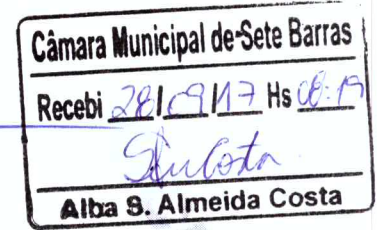 Câmara Municipal de Sete Barras
Recebi 28/09/17 Hs 08:19
Alba S. Almeida Costa